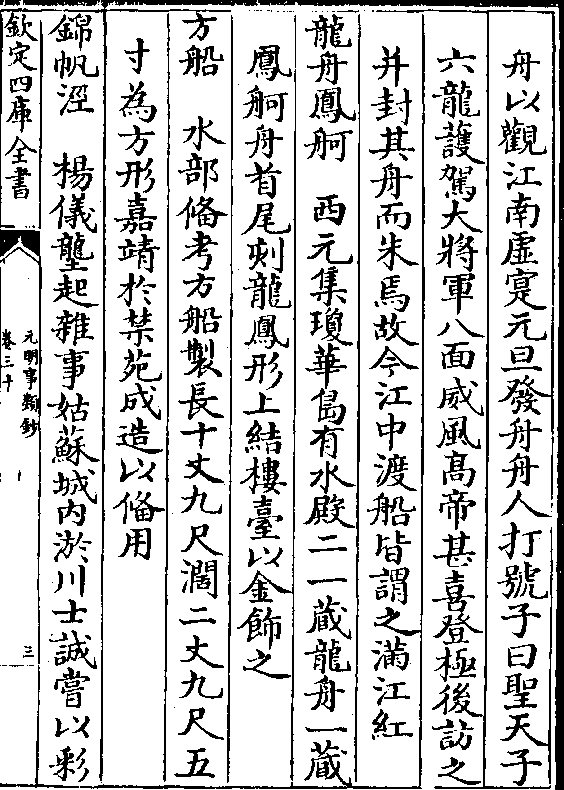 舟以觀江南虛寔元旦發舟舟人打號子曰聖天子
六龍護駕大將軍八面威風高帝甚喜登極後訪之
并封其舟而朱焉故今江中渡船皆謂之滿江紅
龍舟鳳舸　西元集瓊華島有水殿二一蔵龍舟一蔵
鳳舸舟首尾刻龍鳳形上結樓臺以金飾之
方船　水部俻考方船製長十丈九尺濶二丈九尺五
寸為方形嘉靖於禁苑成造以俻用
錦帆涇　楊儀壟起雜事姑蘇城内淤川士誠嘗以彩
欽定四庫全書
元明事類鈔
卷三十
三